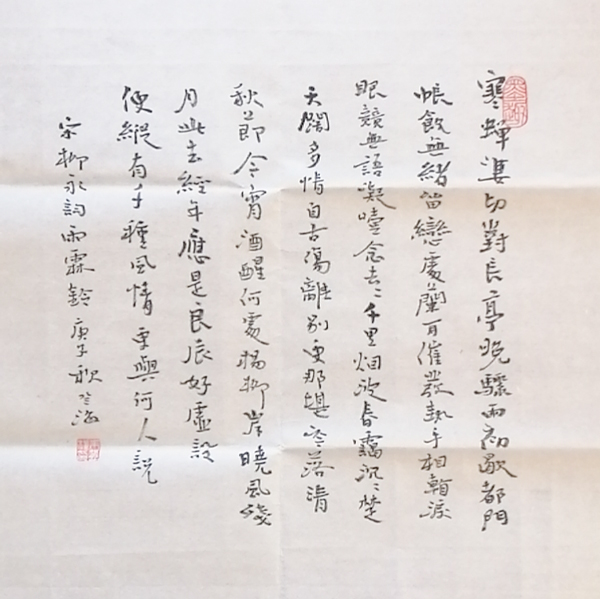 寒蟬淒切對長亭晚驟雨初歇都門
帳飲無緒留戀處蘭舟催發執手相看淚
眼競無語凝噎念去〻千里烟波暮靄沉〻楚
天闊多情自古傷離別更那堪冷落清
秋節今宵酒醒何處楊柳岸曉風殘
月此去經年應是良辰好虛設
便縱有千種風情更與何人說
宋柳永詞雨霖鈴庚子秋